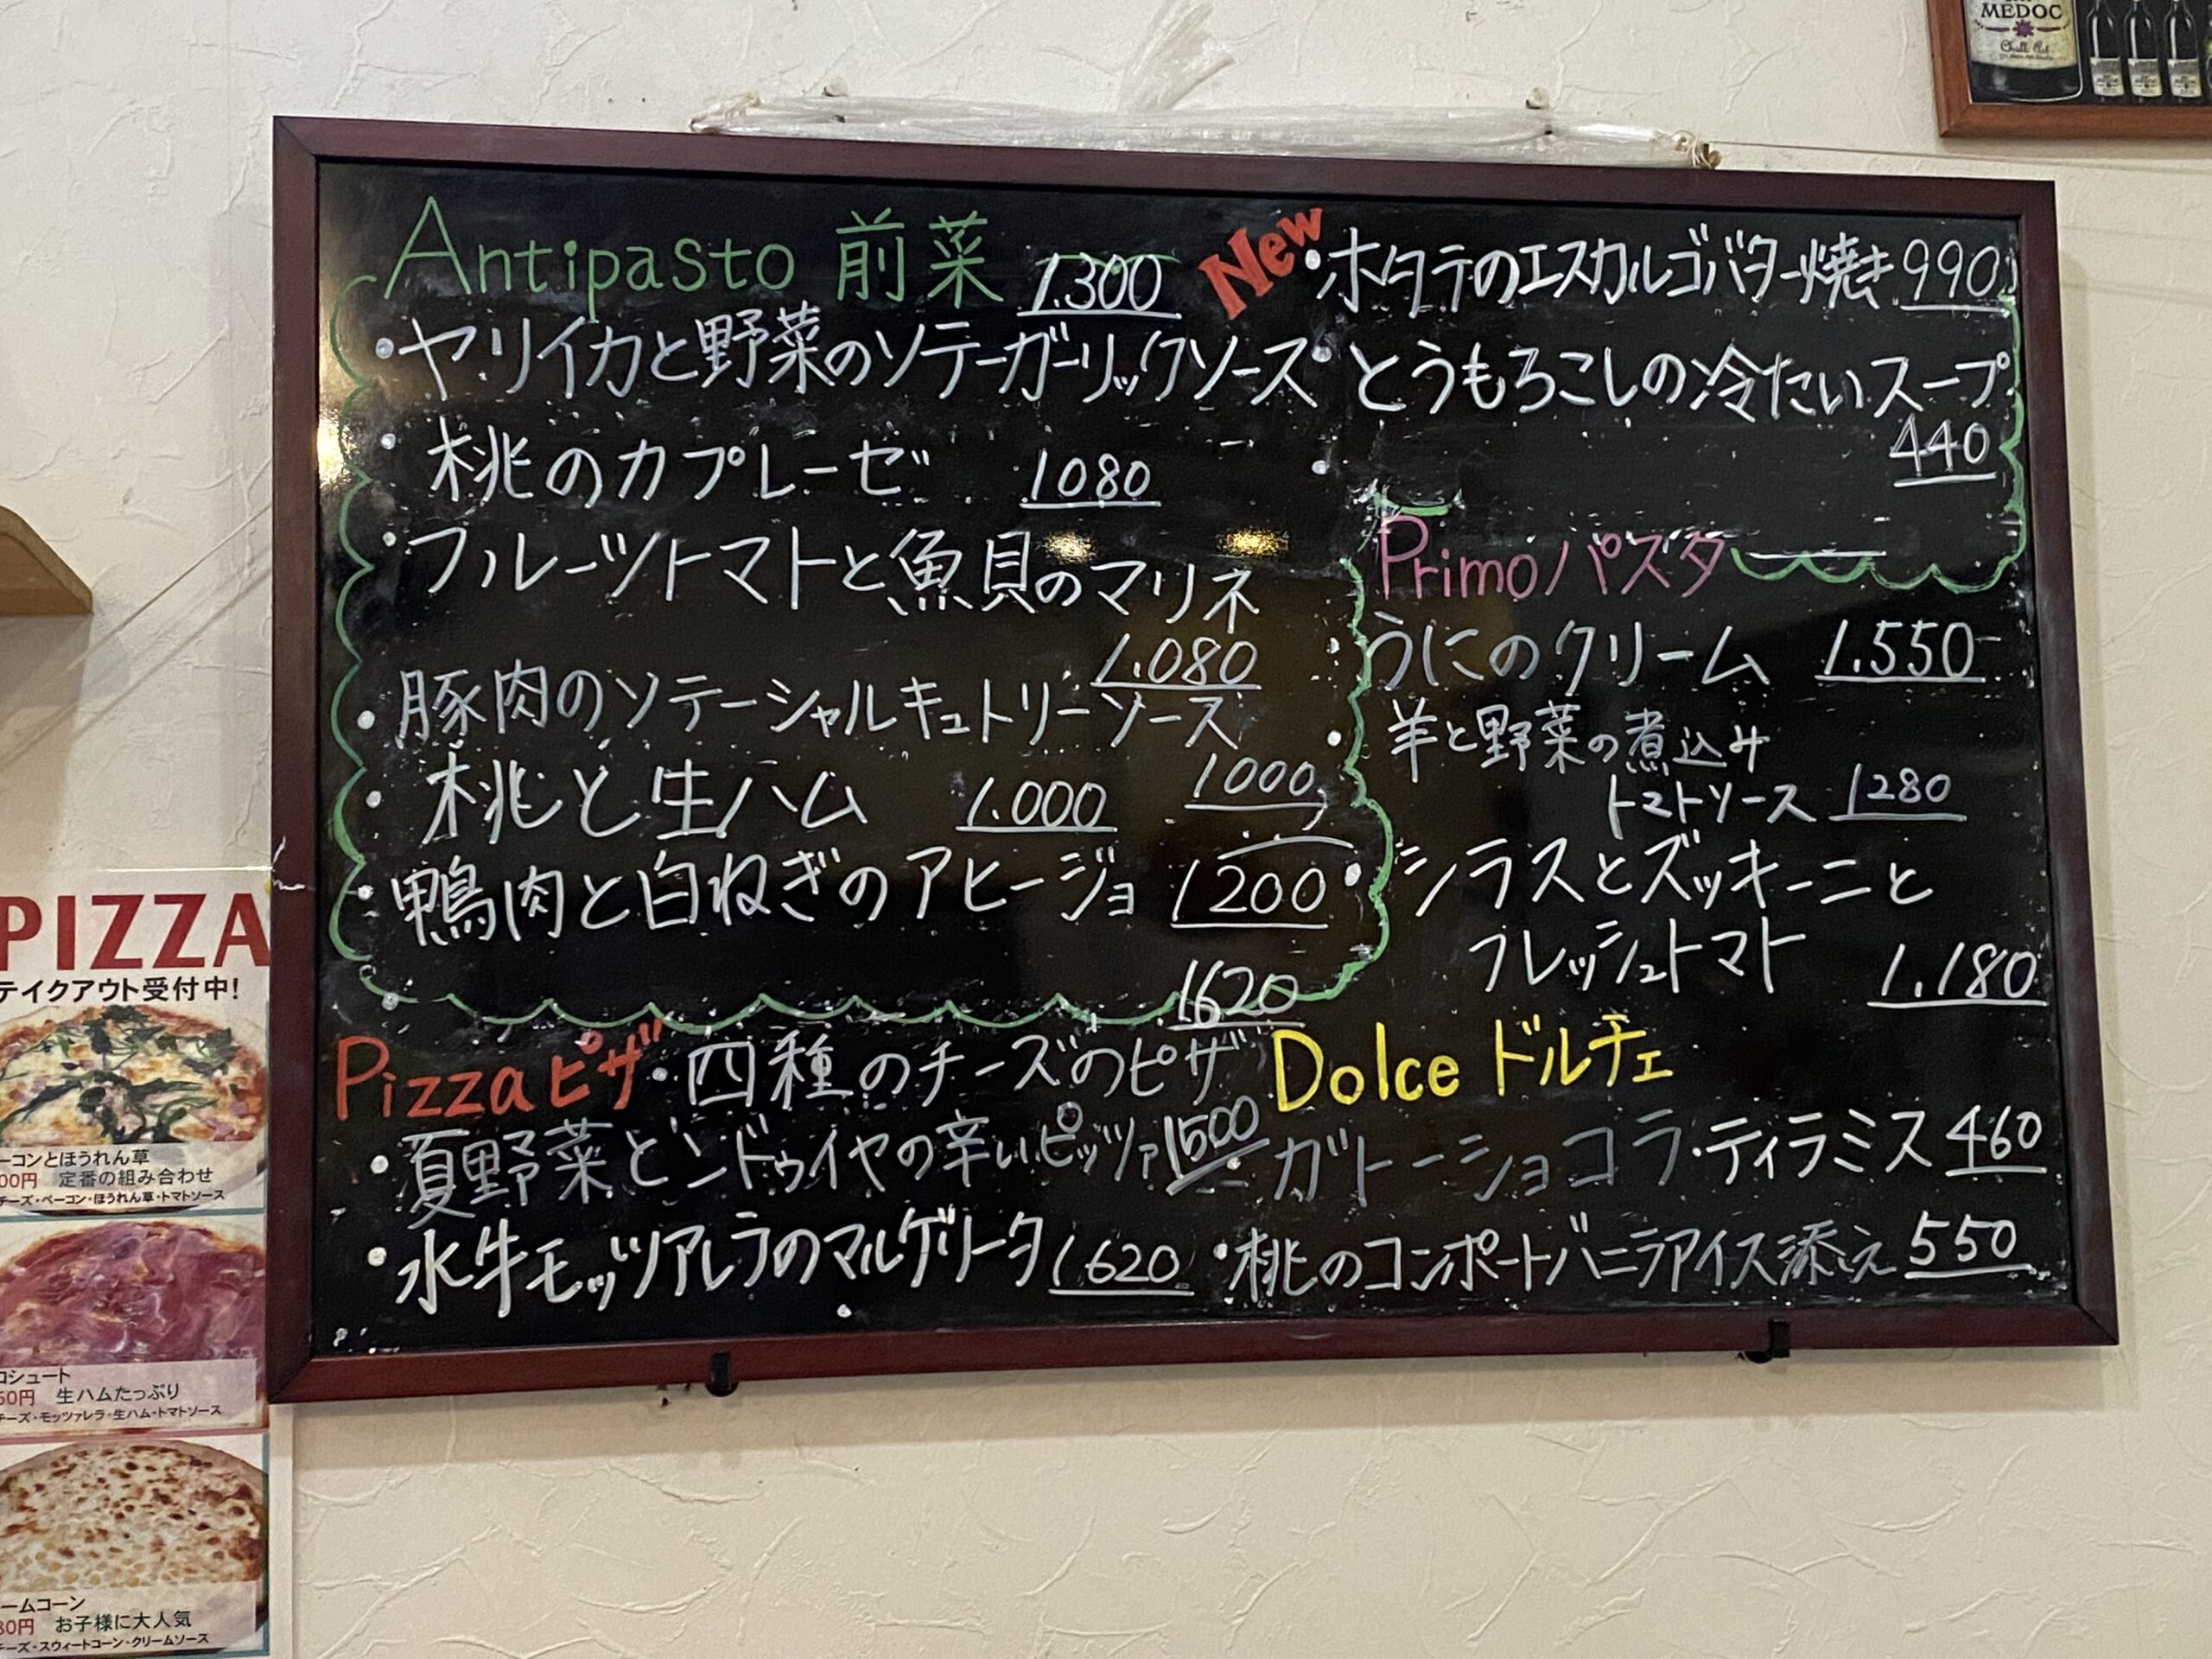 Antipasto 前菜
1.300
・ヤリイカと野菜のソテーガーリックソース
・桃のカプレーゼ 1080
・フルーツトマトと魚貝のマリネ
1.080
・豚肉のソテーシャルキュトリーソース
1000
・桃と生ハム 1.000
・鴨肉と白ねぎのアヒージョ 1200
New・ホタテのエスカルゴバター焼き 990
・とうもろこしの冷たいスープ
440
Primo パスタ
・うにのクリーム 1.550
・羊と野菜の煮込み
トマトソース 1280
・シラスとズッキーニと
フレッシュトマト 1.180
1620
Pizza ピザ・四種のチーズのピザ
・夏野菜とンドゥイヤの辛いピッツァ 1500
・水牛モッツアレラのマルゲリータ 1620
Dolce ドルチェ
・ガトーショコラ・ティラミス 460
・桃のコンポートバニラアイス添え 550
PIZZA
テイクアウト受付中!
ーコンとほうれん草
00円 定番の組み合わせ
チーズ・ベーコン・ほうれん草・トマトソース
コシュート
60円 生ハムたっぷり
チーズ・モッツァレラ・生ハム・トマトソース
ームコーン
80円 お子様に大人気
チーズ・スウィートコーン・クリームソース
MEDOC